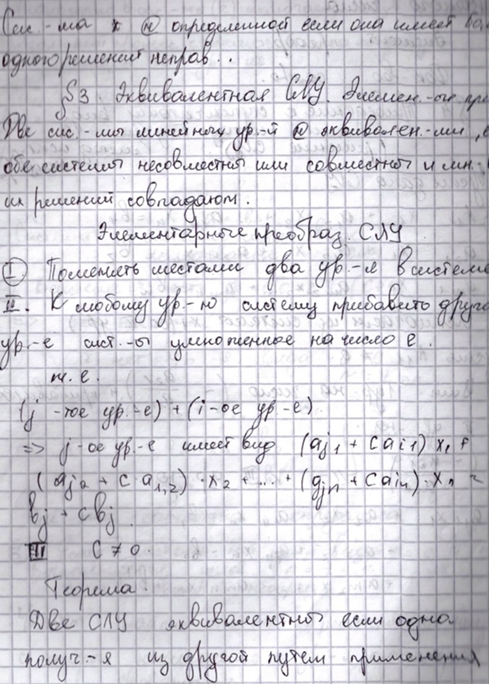 Сис.-ма х (н) определенной если она имеет
одного решений неправ..
§3. Эквивалентная СЛУ. Элемен.-ые пре
Две сис.-мы линейных ур.-й (н) эквивален.-ми, е
обе системы несовместны или совместны и мн.
их решений совпадают.
Элементарные преобраз. СЛУ
I Поменять местами два ур.-я в системе
II. К любому ур.-ю систему прибавить друго
ур.-е сист.-ы умноженное на число с.
т.е.
(j -тое ур.-е) + (i-ое ур.-е)
=> j-ое ур.-е имеет вид (aj1 + cai1) x1 +
(aj2 + c a1,2) · x2 + ... + (ajn + cain) · xn =
bj + cbj
III c ≠ 0.
Теорема.
Две СЛУ эквивалентны если одна
получ-я из другой путем применения